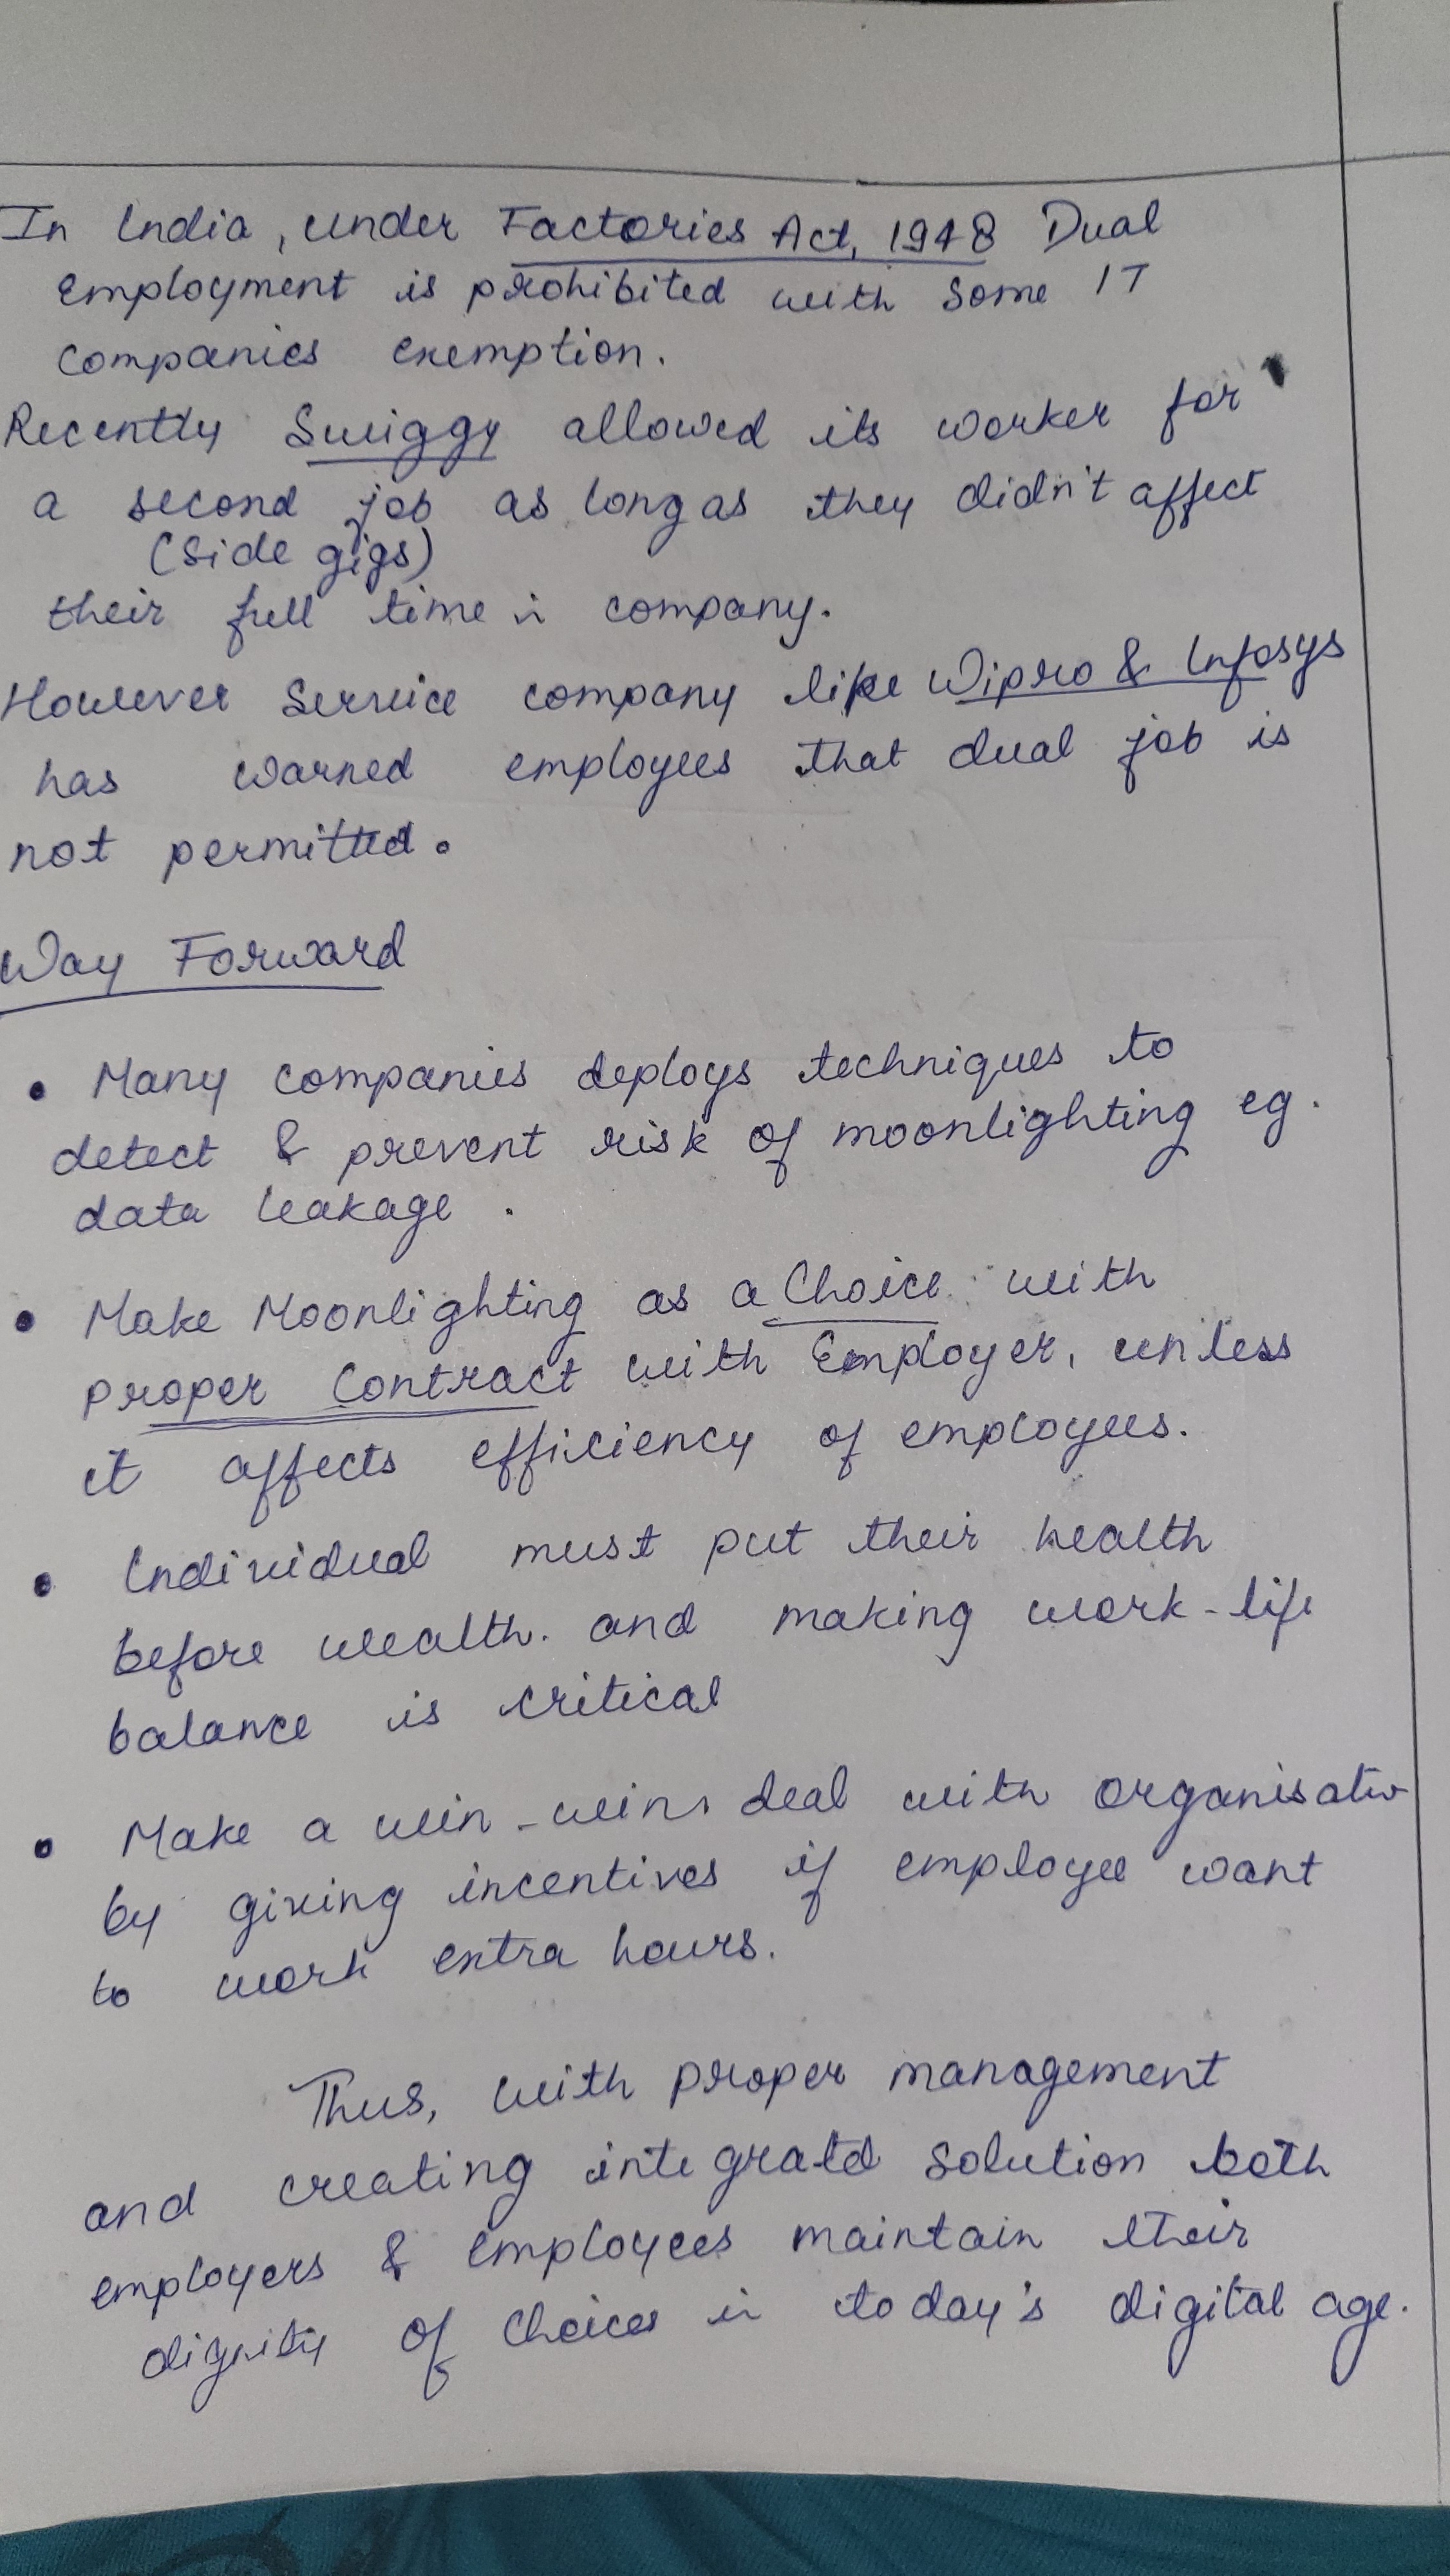 In India, under Factories Act, 1948 Dual
Employment is prohibited with some IT
Companies exemption.
Recently Swiggy allowed its worker for
a second job as long as they didn't affect
(side gigs)
their full time in company.
However Service company like Wipro & Infosys
has warned employees that dual job is
not permitted.
Way Forward
• Many companies deploys techniques to
detect & prevent risk of moonlighting eg.
data leakage.
• Make Moonlighting as a Choice with
proper Contract with Employer, unless
it affects efficiency of employees.
• Individual must put their health
before wealth. and making work-life
balance is critical
• Make a win-win deal with organisation
by giving incentives if employee want
to work extra hours.
Thus, with proper management
and creating integrated solution both
employers & employees maintain their
dignity of choices in today's digital age.